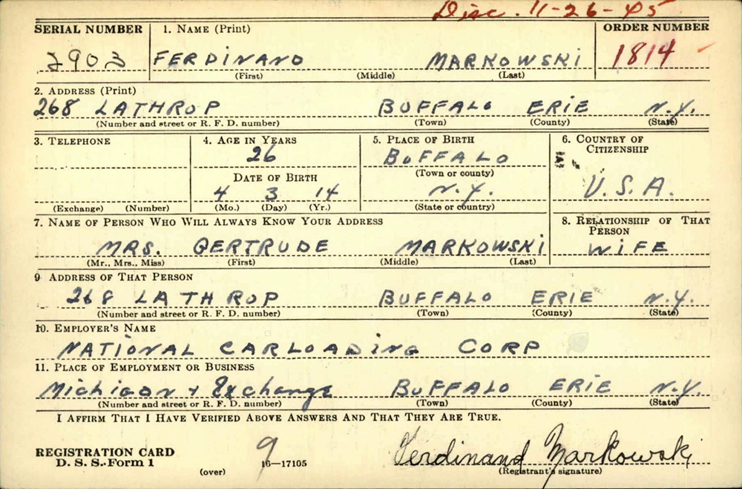 Disc. 11-26-45
SERIAL NUMBER 1. NAME (Print) ORDER NUMBER
2903 FERDINAND MARKOWSKI 1814
(First) (Middle) (Last)
2. ADDRESS (Print)
268 LATHROP BUFFALO ERIE N.Y.
(Number and street or R. F. D. number) (Town) (County) (State)
3. TELEPHONE 4. AGE IN YEARS 5. PLACE OF BIRTH 6. COUNTRY OF CITIZENSHIP
26 BUFFALO
(Town or county)
DATE OF BIRTH
4 3 14 N.Y. U.S.A.
(Exchange) (Number) (Mo.) (Day) (Yr.) (State or country)
7. NAME OF PERSON WHO WILL ALWAYS KNOW YOUR ADDRESS 8. RELATIONSHIP OF THAT PERSON
MRS. GERTRUDE MARKOWSKI WIFE
(Mr., Mrs., Miss) (First) (Middle) (Last)
9 ADDRESS OF THAT PERSON
268 LATHROP BUFFALO ERIE N.Y.
(Number and street or R. F. D. number) (Town) (County) (State)
10. EMPLOYER'S NAME
NATIONAL CARLOADING CORP
11. PLACE OF EMPLOYMENT OR BUSINESS
Michigan + Exchange BUFFALO ERIE N.Y.
(Number and street or R. F. D. number) (Town) (County) (State)
I AFFIRM THAT I HAVE VERIFIED ABOVE ANSWERS AND THAT THEY ARE TRUE.
REGISTRATION CARD
D. S. S. Form 1 (over) 9 16-17105 Ferdinand Markowski
(Registrant's signature)